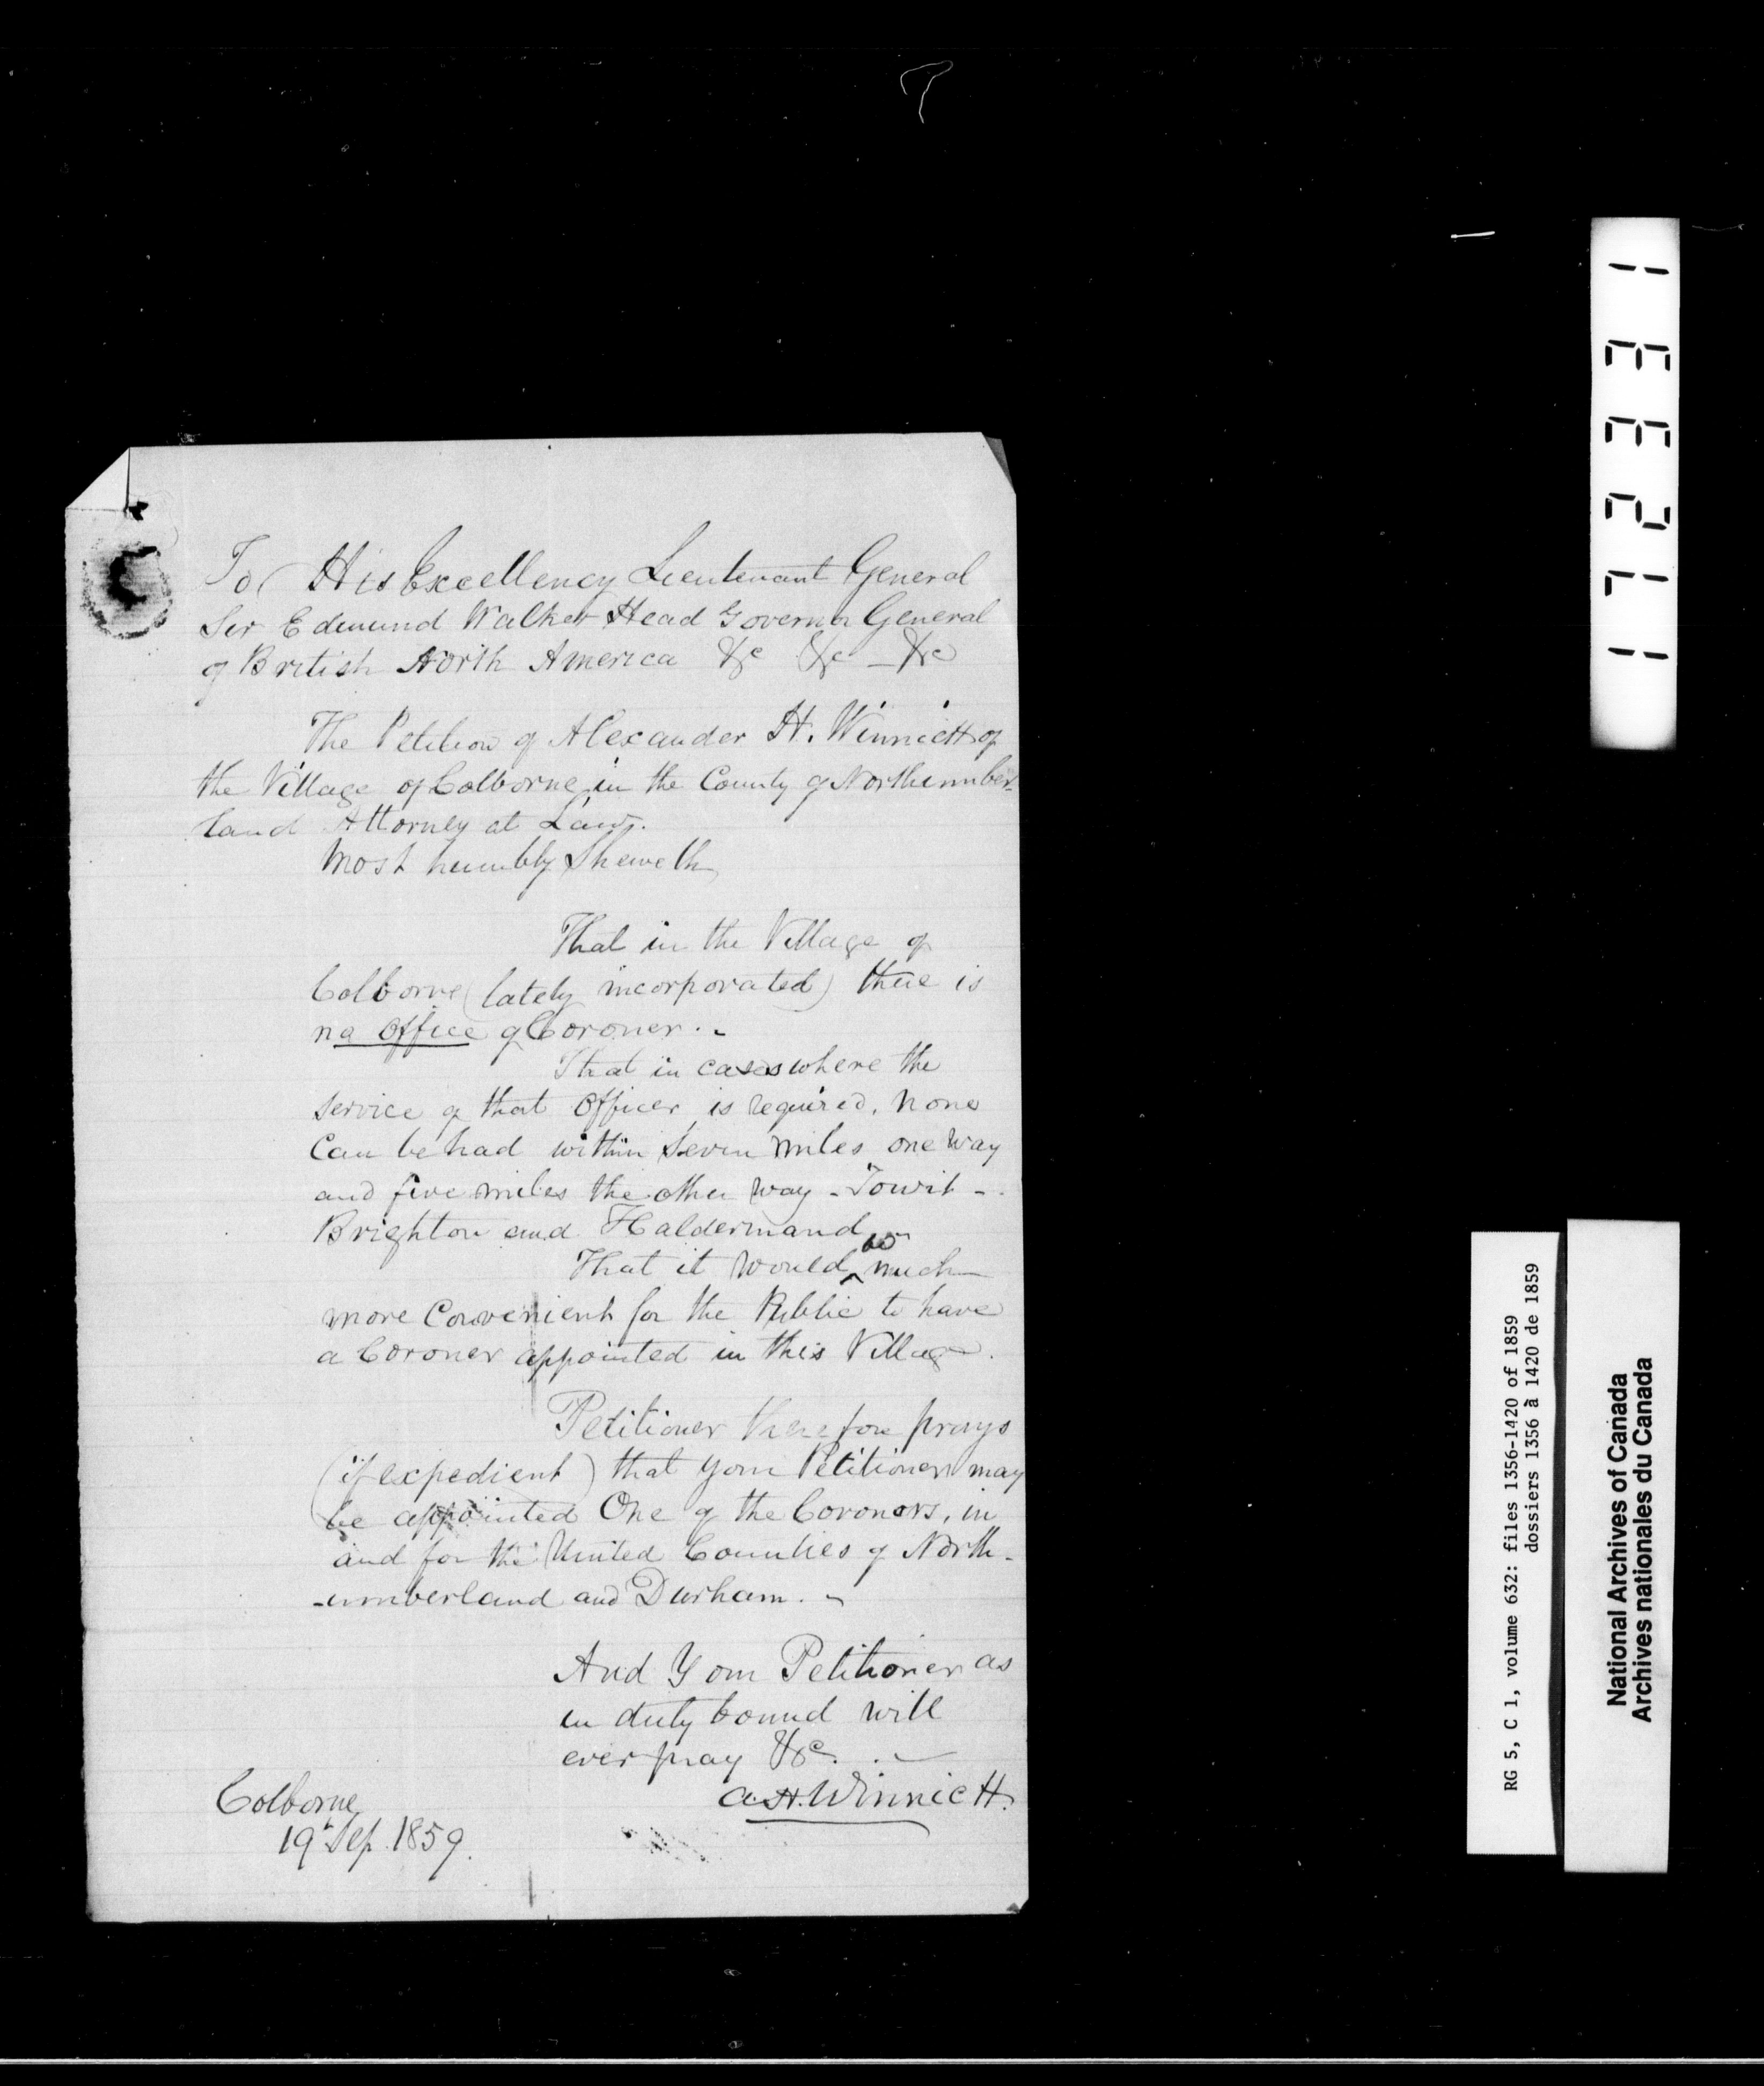 To His Excellency Lieutenant General
Sir Edmund Walker Head Governor General
of British North America &c &c - &c
The Petition of Alexander H. Winniett of
the Village of Colborne in the County of Northumber-
land Attorney at Law.
Most humbly Sheweth
That in the Village of
Colborne (lately incorporated) there is
no office of Coroner. -
That in cases where the
service of that Officer is required, none
Can be had within Seven miles one way
and five miles the other way - Towit -
Brighton and Haldermand
That it would be much
more Convenient for the Public to have
a Coroner appointed in this Village.
Petitioner therefore prays
(if expedient) that your Petitioner may
be appointed One of the Coroners, in
and for the United Counties of North-
-umberland and Durham. -
And Your Petitioner as
in duty bound will
ever pray &c. . -
A. H. Winniett.
Colborne
19th Sep. 1859.
117233 1
RG 5, C 1, volume 632: files 1356-1420 of 1859
dossiers 1356 à 1420 de 1859
National Archives of Canada
Archives nationales du Canada